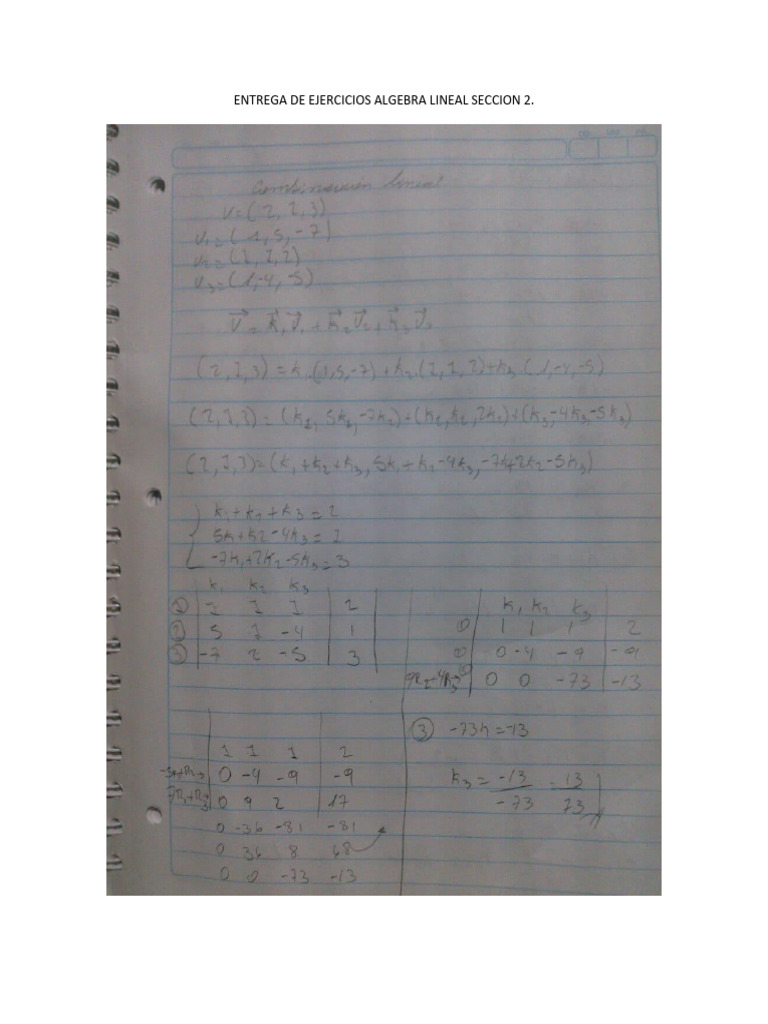 ENTREGA DE EJERCICIOS ALGEBRA LINEAL SECCION 2.
Combinación lineal
V=(2,1,3)
V1=(1,5,-7)
V2=(1,1,2)
V3=(1,-4,-5)
V=K1V1+K2V2+K3V3
(2,1,3)=K1(1,5,-7)+K2.(1,1,2)+K3.(1,-4,-5)
(2,1,3)=(K1, 5K1,-7K1)+(K2,K2,2K2)+(K3,-4K3,-5K3)
(2,1,3)=(K1+K2+K3, 5K1+K2-4K3,-7K1+2K2-5K3)
K1+K2+K3=2
5K1+K2-4K3=1
-7K1+2K2-5K3=3
K1 K2 K3
① 1 1 1 2
② 5 1 -4 1
③ -7 2 -5 3
1 1 1 2
-5R1+R2 0 -4 -9 -9
7R1+R3 0 9 2 17
0 -36 -81 -81
0 36 8 68
0 0 -73 -13
K1 K2 K3
① 1 1 1 2
② 0 -4 -9 -9
9R2+4R3→③ 0 0 -73 -13
③ -73K=-13
K3= -13/-73 = 13/73